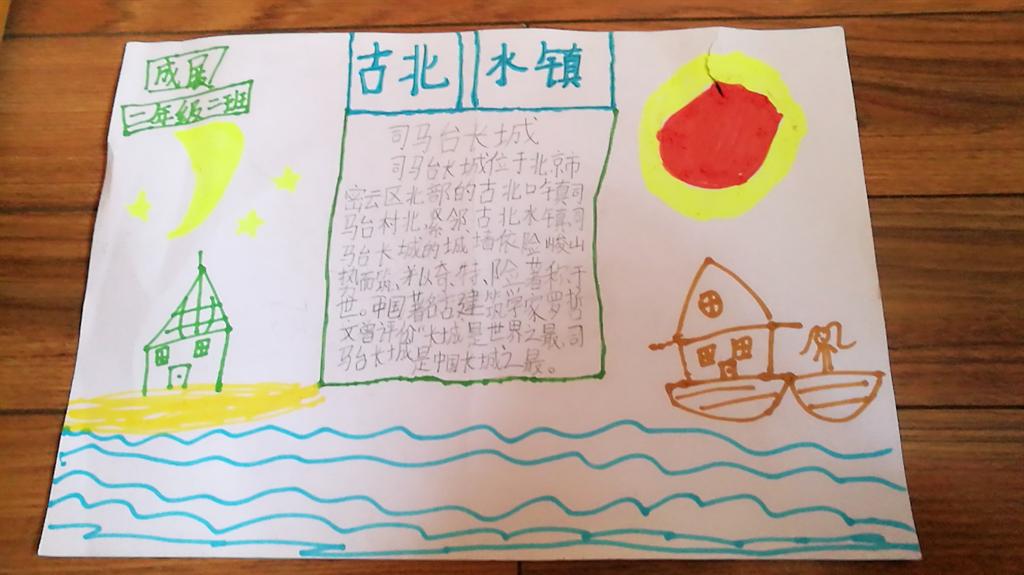 成展
二年级二班
古北水镇
司马台长城
司马台长城位于北京市
密云区北部的古北口镇司
马台村北,紧邻古北水镇,司
马台长城的城墙依险峻山
势而筑,并以奇、特、险著称于
世。中国著名古建筑学家罗哲
文曾评价“长城是世界之最,司
马台长城是中国长城之最。